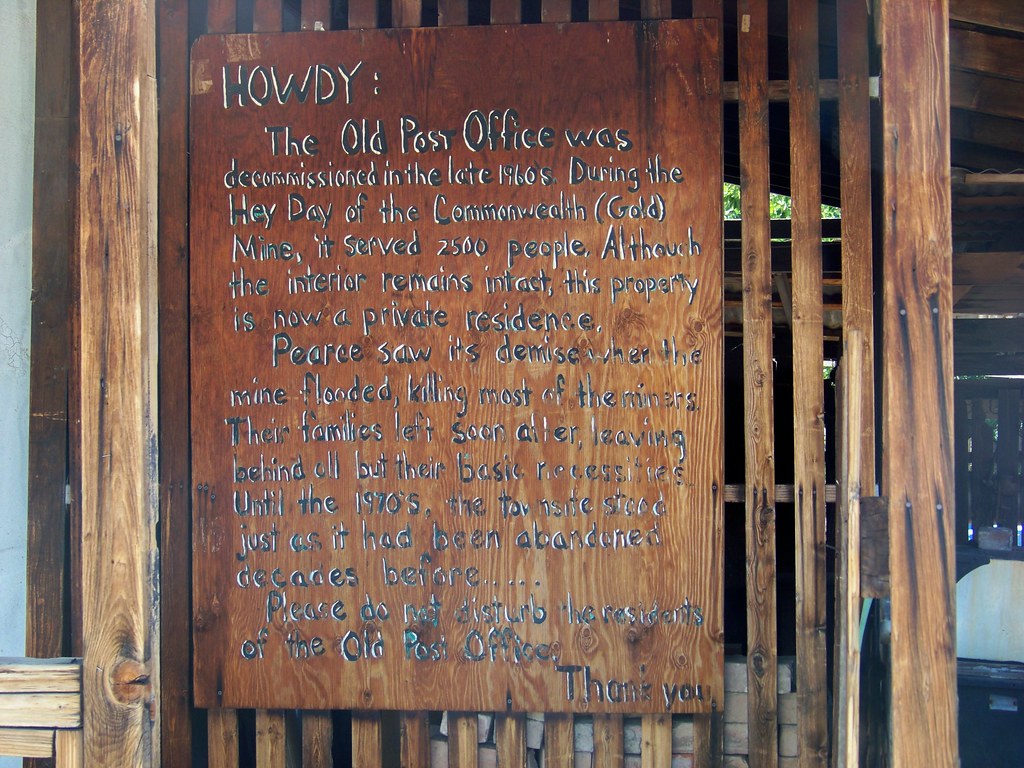 HOWDY:
The Old Post Office was
decommissioned in the late 1960's. During the
Hey Day of the Commonwealth (Gold)
Mine, it served 2500 people. Although
the interior remains intact, this property
is now a private residence.
Pearce saw its demise when the
mine flooded, killing most of the miners.
Their families left soon after, leaving
behind all but their basic necessities.
Until the 1970's, the townsite stood
just as it had been abandoned
decades before.....
Please do not disturb the residents
of the Old Post Office.
Thank you.